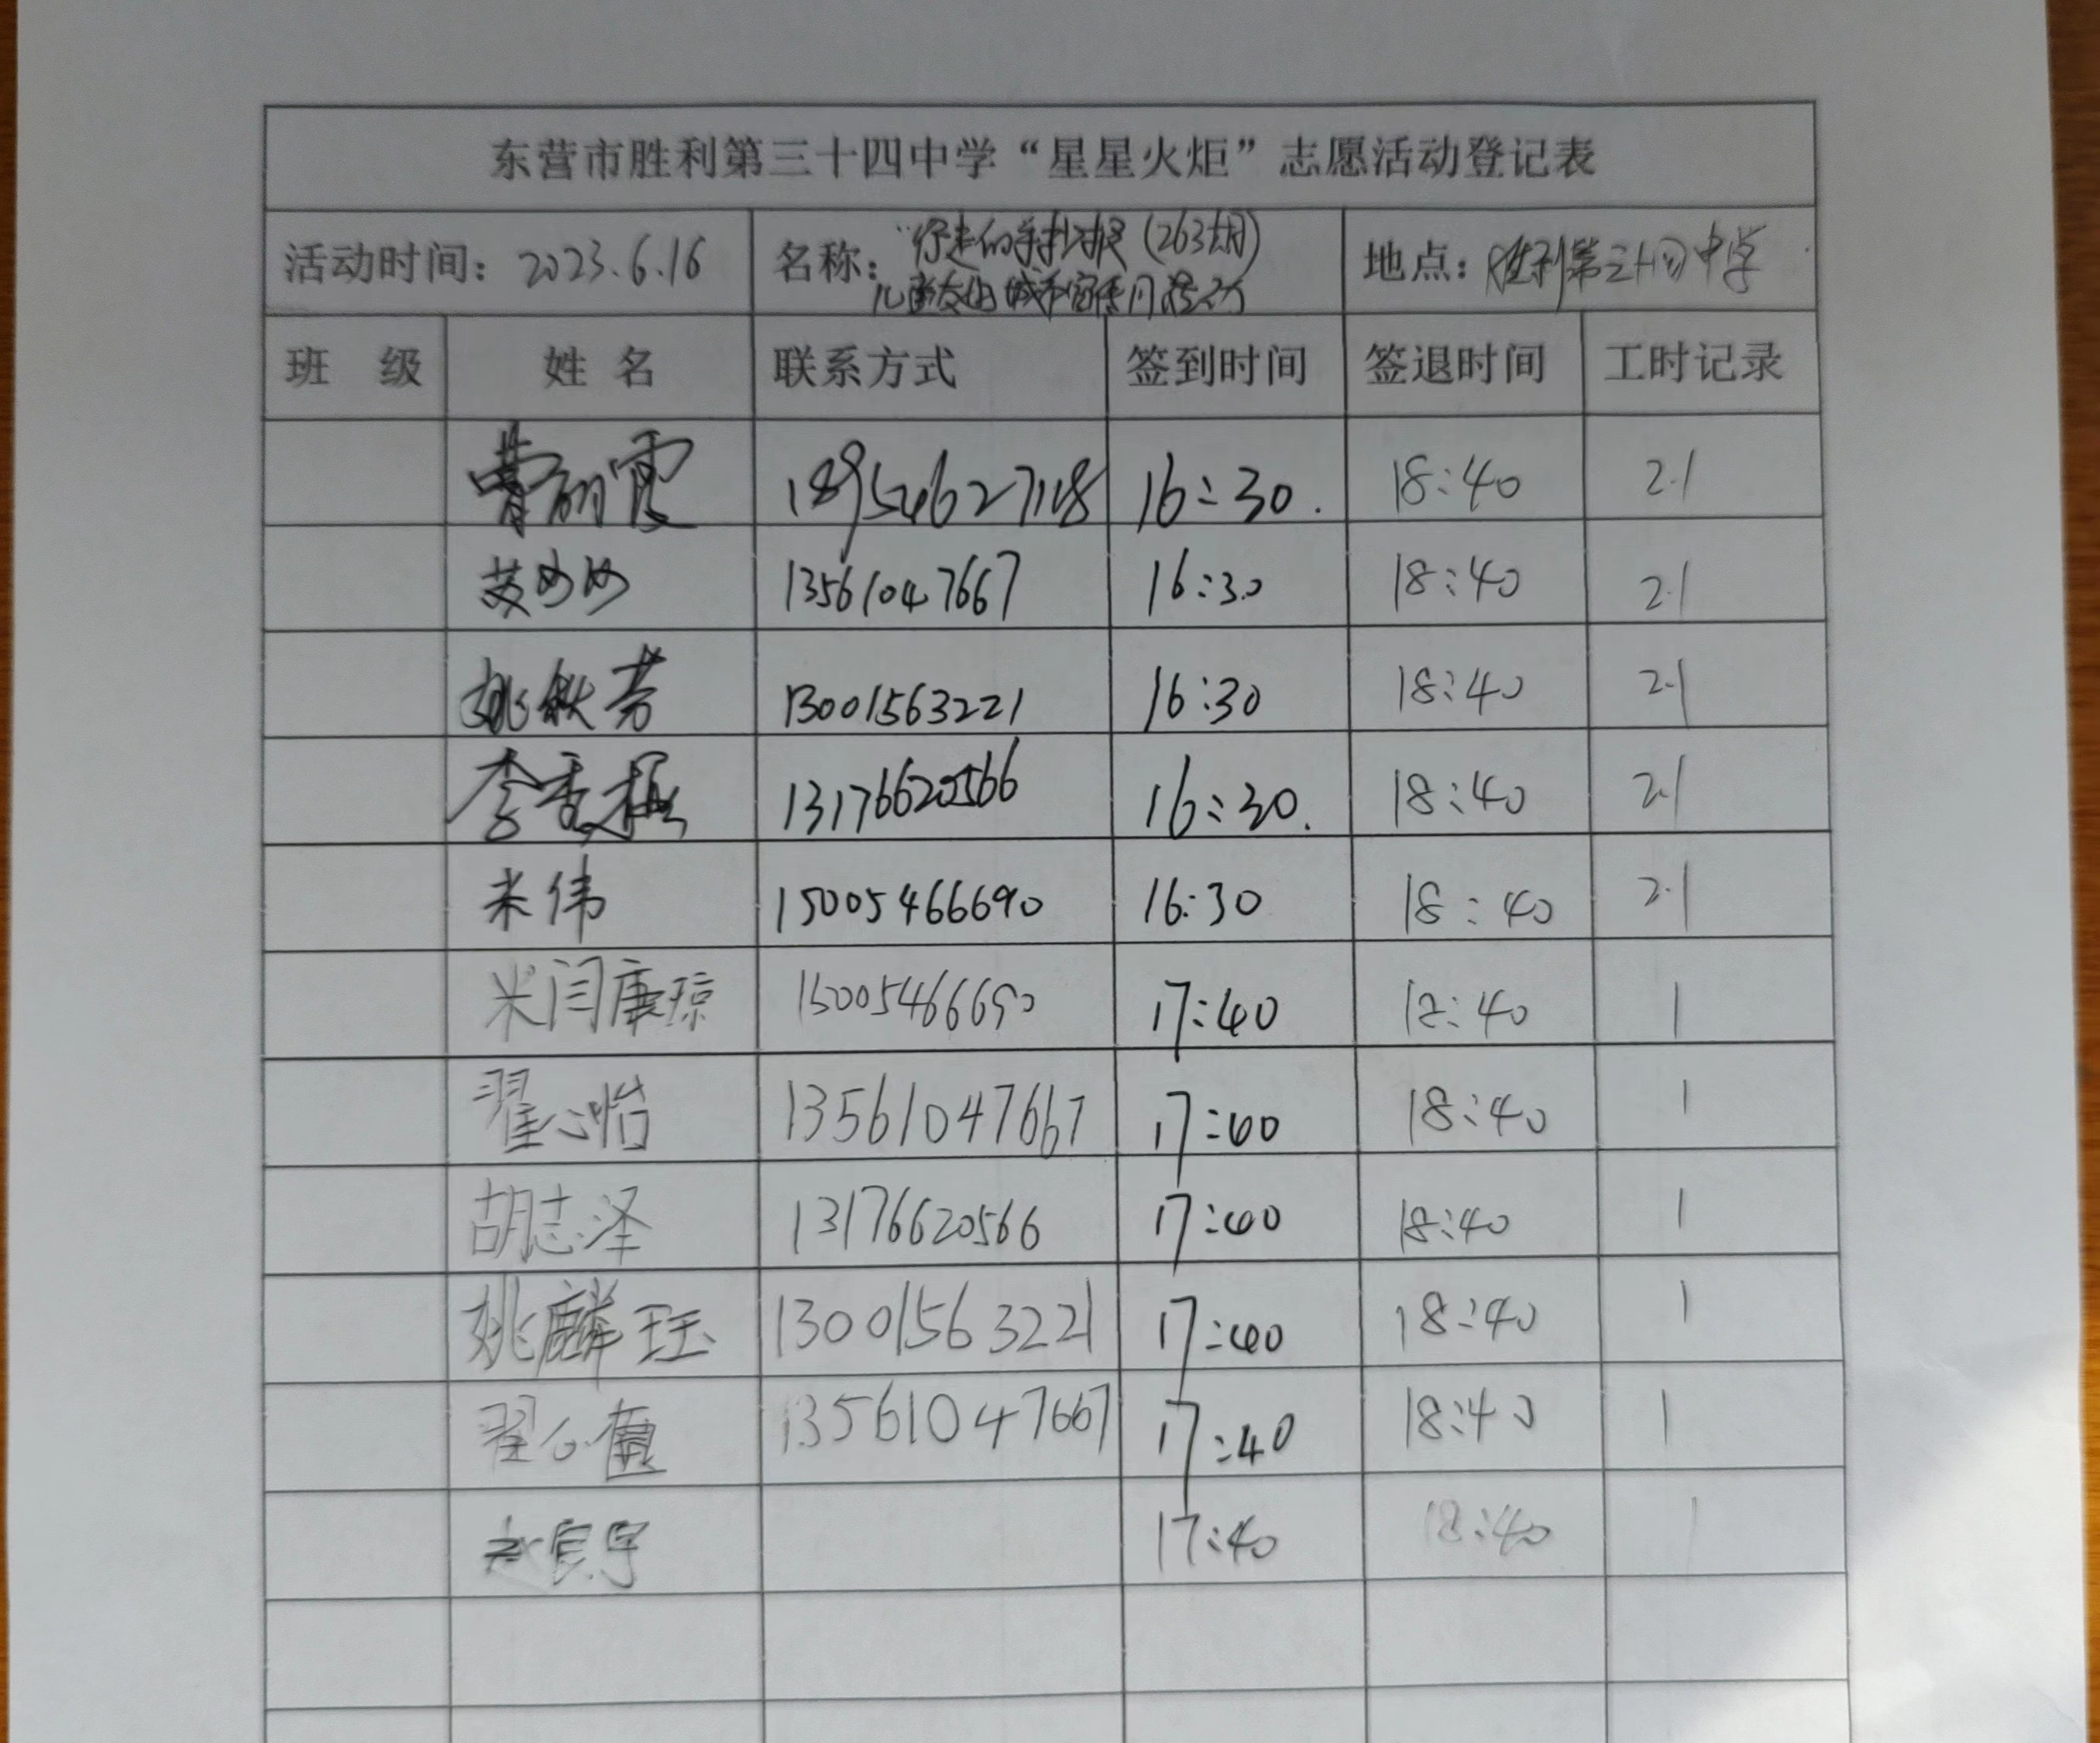 东营市胜利第三十四中学“星星火炬”志愿活动登记表
活动时间：2023.6.16 名称：“行走的手抄报（263期） 地点：胜利第三十四中学
儿童友好城市宣传月活动
班 级 姓 名 联系方式 签到时间 签退时间 工时记录
曹丽霞 18954627118 16:30. 18:40 2.1
苏以以 13561047667 16:30 18:40 2.1
姚秋芳 13001563221 16:30 18:40 2.1
李秀梅 13176620566 16:30. 18:40 2.1
米伟 15005466690 16:30 18:40 2.1
米闫康琼 15005466690 17:40 18:40 1
翟心怡 13561047667 17:40 18:40 1
胡志泽 13176620566 17:40 18:40 1
姚麟珏 13001563221 17:40 18:40 1
翟心 13561047667 17:40 18:40 1
赵宸宇 17:40 18:40 1